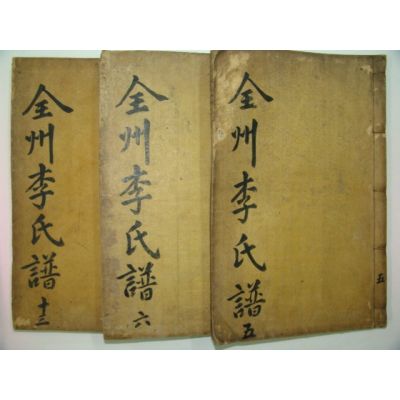 全州李氏譜 十三
全州李氏譜 六
全州李氏譜 五
五